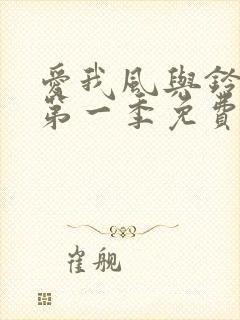 愛我風與鈴
第一季免費
崔舰